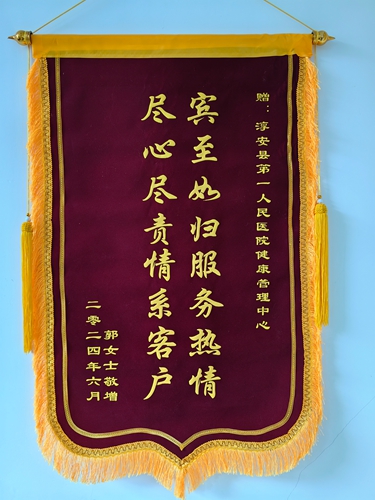 赠：淳安县第一人民医院健康管理中心
宾至如归服务热情
尽心尽责情系客户
郭女士敬增
二零二四年六月